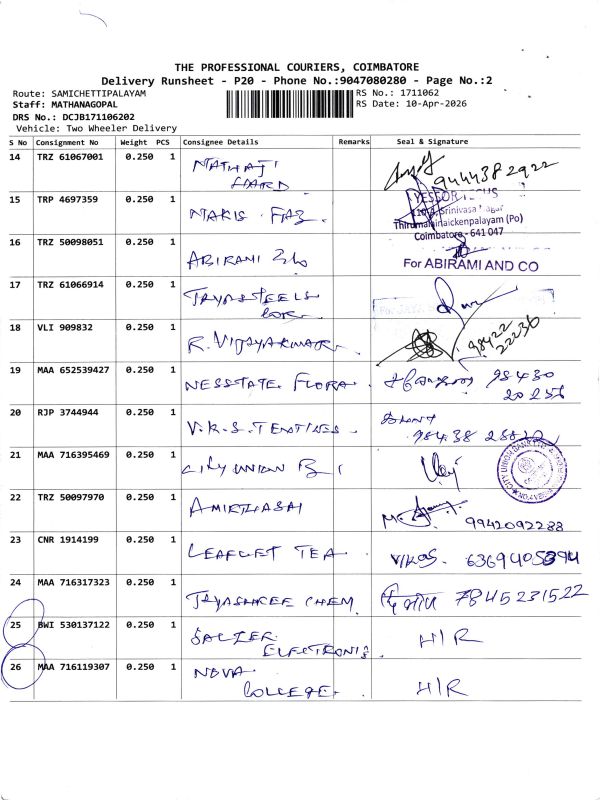 THE PROFESSIONAL COURIERS, COIMBATORE
Delivery Runsheet - P20 - Phone No.:9047080280 - Page No.:2
Route: SAMICHETTIPALAYAM RS No.: 1711062
Staff: MATHANAGOPAL RS Date: 10-Apr-2026
DRS No.: DCJB171106202
Vehicle: Two Wheeler Delivery
S No Consignment No Weight PCS Consignee Details Remarks Seal & Signature
14 TRZ 61067001 0.250 1 NATHAJI 9444382922
HARD
15 TRP 4697359 0.250 1 NAKIS FAB
Srinivasa Nagar
Thirumalainaickenpalayam (Po)
Coimbatore - 641 047
16 TRZ 50098051 0.250 1 ABIRAMI
For ABIRAMI AND CO
17 TRZ 61066914 0.250 1 JAYASTEELS
CORN
18 VLI 909832 0.250 1 R. VIJAYAKUMAR 98422
22236
19 MAA 652539427 0.250 1 NESSTATE FLORA 98430
20256
20 RJP 3744944 0.250 1 V.R.S. TEXTILES
21 MAA 716395469 0.250 1 CITY UNION B
CITY UNION BANK LTD
22 TRZ 50097970 0.250 1 AMIRTHASAI 9942092288
23 CNR 1914199 0.250 1 LEAFLET TEA VIKAS. 6369405394
24 MAA 716317323 0.250 1 JAYASHREE CHEM 7845231522
25 BWI 530137122 0.250 1 SALZER H/R
ELECTRONIS
26 MAA 716119307 0.250 1 NOVA H/R
COLLEGE